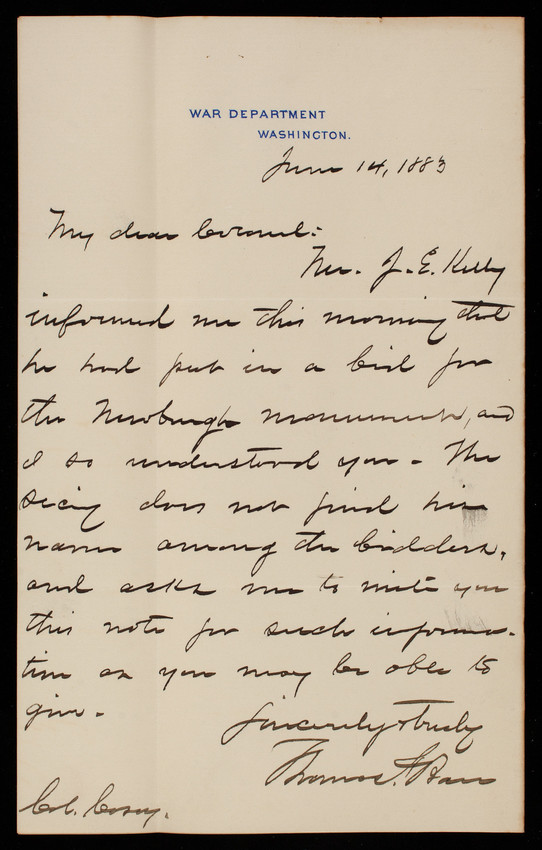 WAR DEPARTMENT
WASHINGTON.
June 14, 1883
My dear Colonel:
Mr. J. E. Kelly
informed me this morning that
he had put in a bid for
the Newburgh monument, and
I so understood you. The
Secy does not find his
name among the bidders,
and asks me to write you
this note for such informa-
tion as you may be able to
give.
Sincerely & truly
Thomas
Col. Casey.